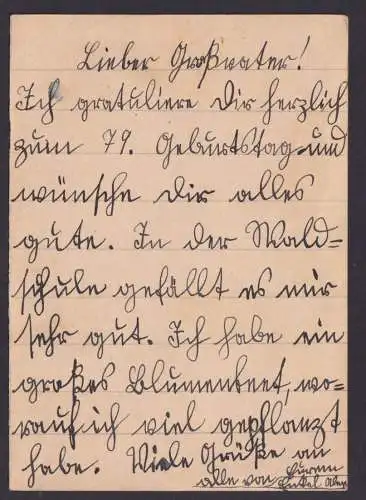 Lieber Großvater!
Ich gratuliere Dir herzlich
zum 79. Geburtstag und
wünsche Dir alles
gute. In der Wald=
schule gefällt es mir
sehr gut. Ich habe ein
großes Blumenbeet, wo=
rauf ich viel gepflanzt
habe. Viele Grüße an
alle von Eurem
Enkel